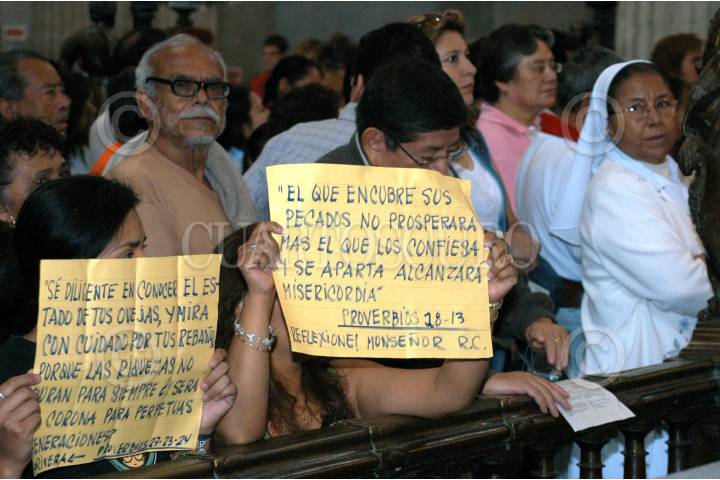 "SÉ DILIGENTE EN CONOCER EL ES-
TADO DE TUS OVEJAS, Y MIRA
CON CUIDADO POR TUS REBAÑ
PORQUE LAS RIQUEZAS NO
DURAN PARA SIEMPRE ¿I SERÁ
CORONA PARA PERPETUAS
GENERACIONES?
PROVERBIOS 27-23-24
"EL QUE ENCUBRE SUS
PECADOS NO PROSPERARÁ
MAS EL QUE LOS CONFIESA
Y SE APARTA ALCANZARÁ
MISERICORDIA"
PROVERBIOS 28-13
REFLEXIONE! MONSEÑOR R.C.
CUARTOSCURO